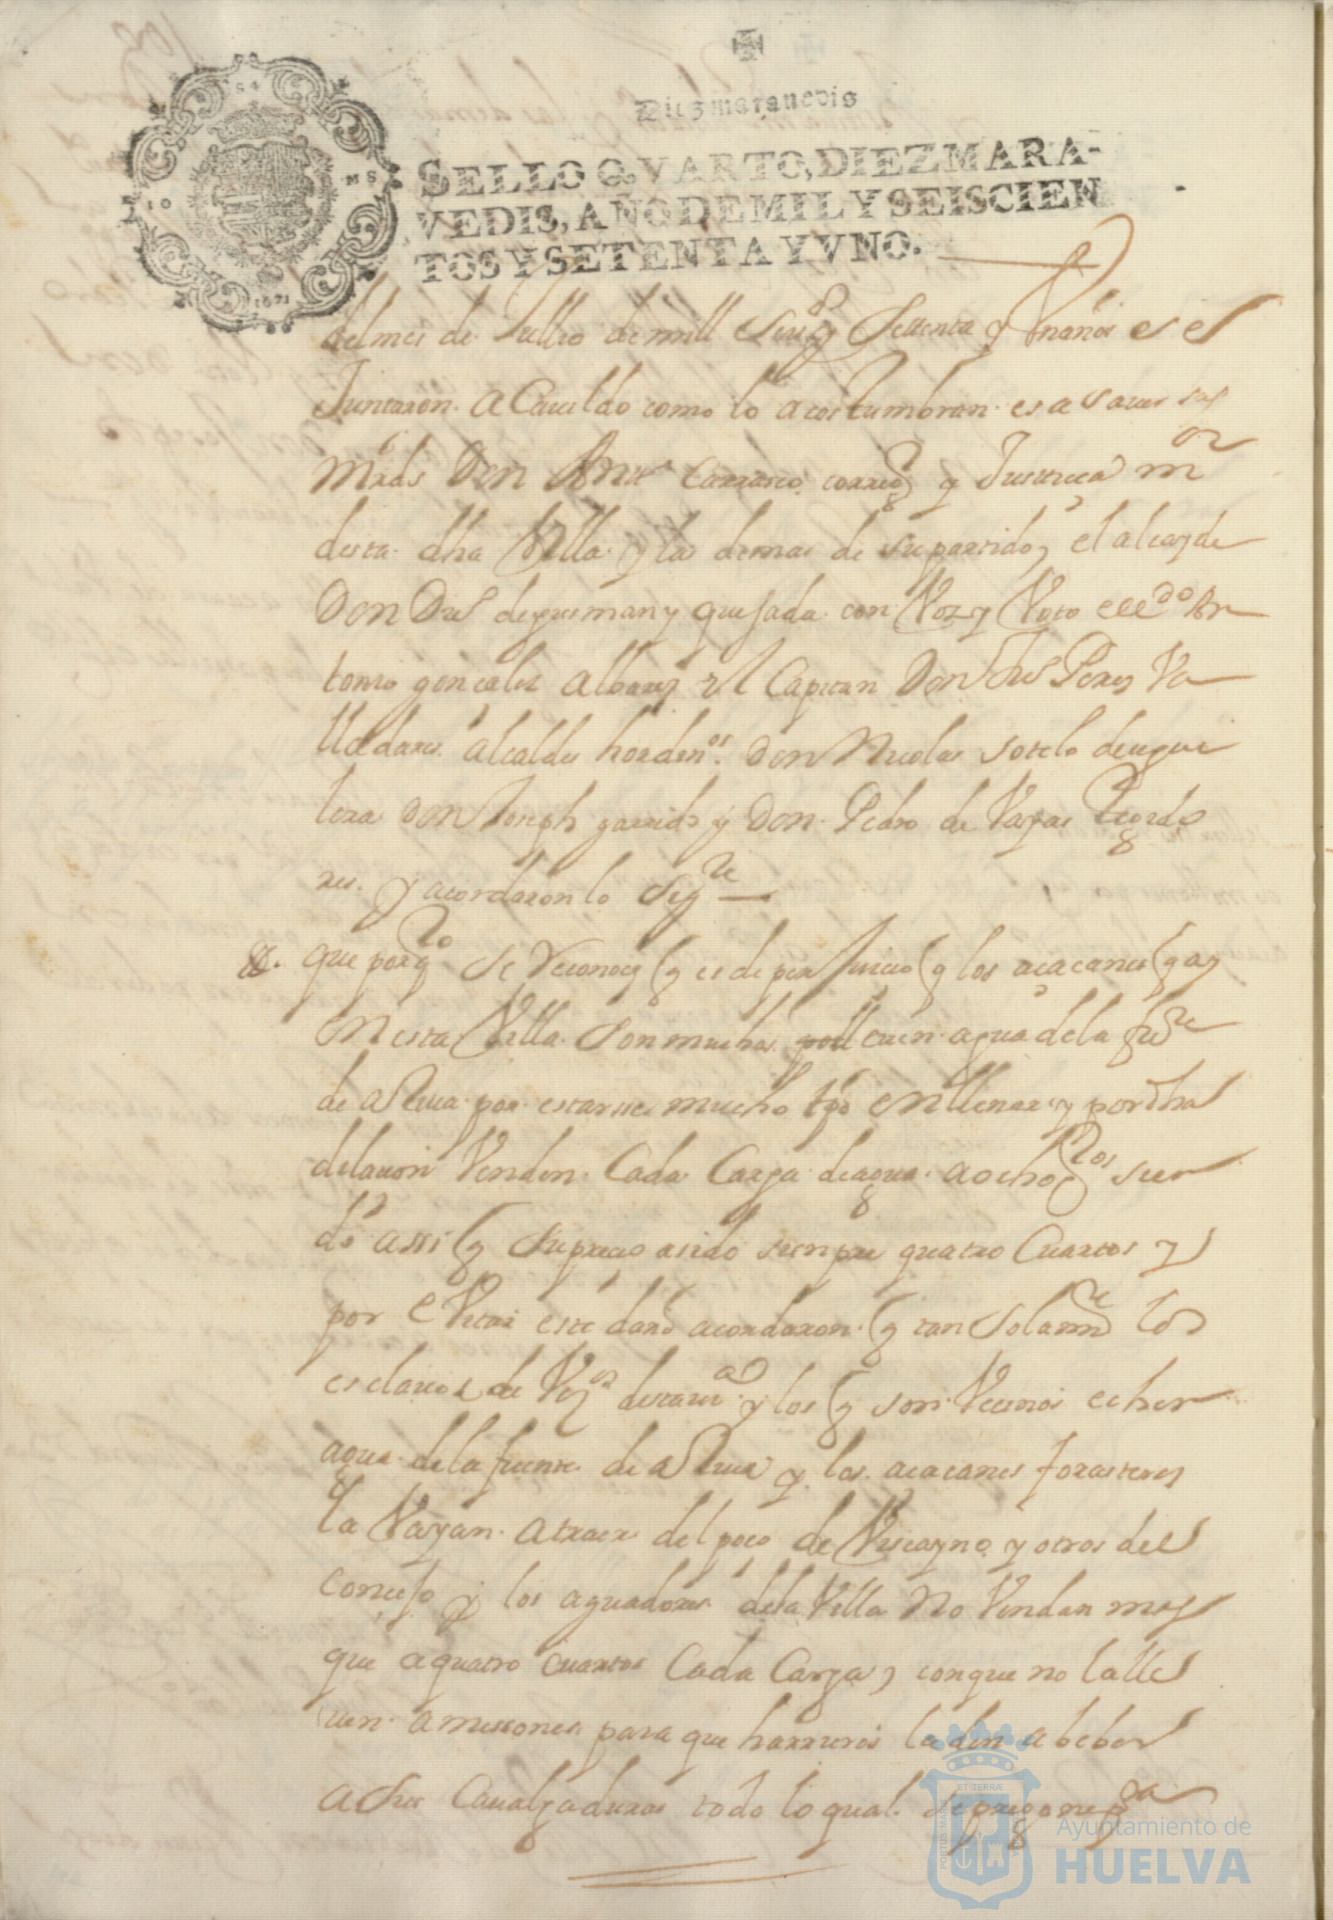 Diez marauedis
SELLO QVARTO, DIEZ MARA-
VEDIS, AÑO DE MIL Y SEISCIEN
TOS Y SETENTA Y VNO.
1671
del mes de Jullio de mill y Seisº Settenta y Un años es el
Juntaron a Cauildo como lo acostumbran es a sauer sus
Mrds Don Antº Carrasco corregº y Justicia mor
desta dha Villa y las demas de su partido, el alcayde
Don Dº de gusman y quesada con Voz y Voto el Ldo An
tonio gonçales albares el Capitan Don Jus Peres Va
lladares alcaldes hordinos. Don Nicolas sotelo de agui
lera Don Joseph garrido y Don Pedro de Vargas Regido
res. y acordaron lo sigte
que porqto se Reconoce q es de perjuicio q los açacanes q ay
en esta Villa son muchos lleuen agua de la fte
de aRiua por estarse mucho tpo en llenar y por dha
delacion Venden Cada Carga de agua a ocho qtos sien
do assi q su precio a sido siempre quatro Cuartos y
por eVitar este daño acordaron q tan Solamte los
esclauos de Vzos desta Vi y los q son Vecinos echen
agua de la fuente de aRiua y los acacanes forasteros
la Vayan atraer del poço de Viscayno y otros del
conçejo y los aguadores de la Villa No Vendan mas
que a quatro cuartos Cada Carga, con que no la lle
uen a messones para que harrieros la den a beber
a Sus Caualgaduras todo lo qual se pregone pa
ET TERRÆ
Ayuntamiento de
HUELVA